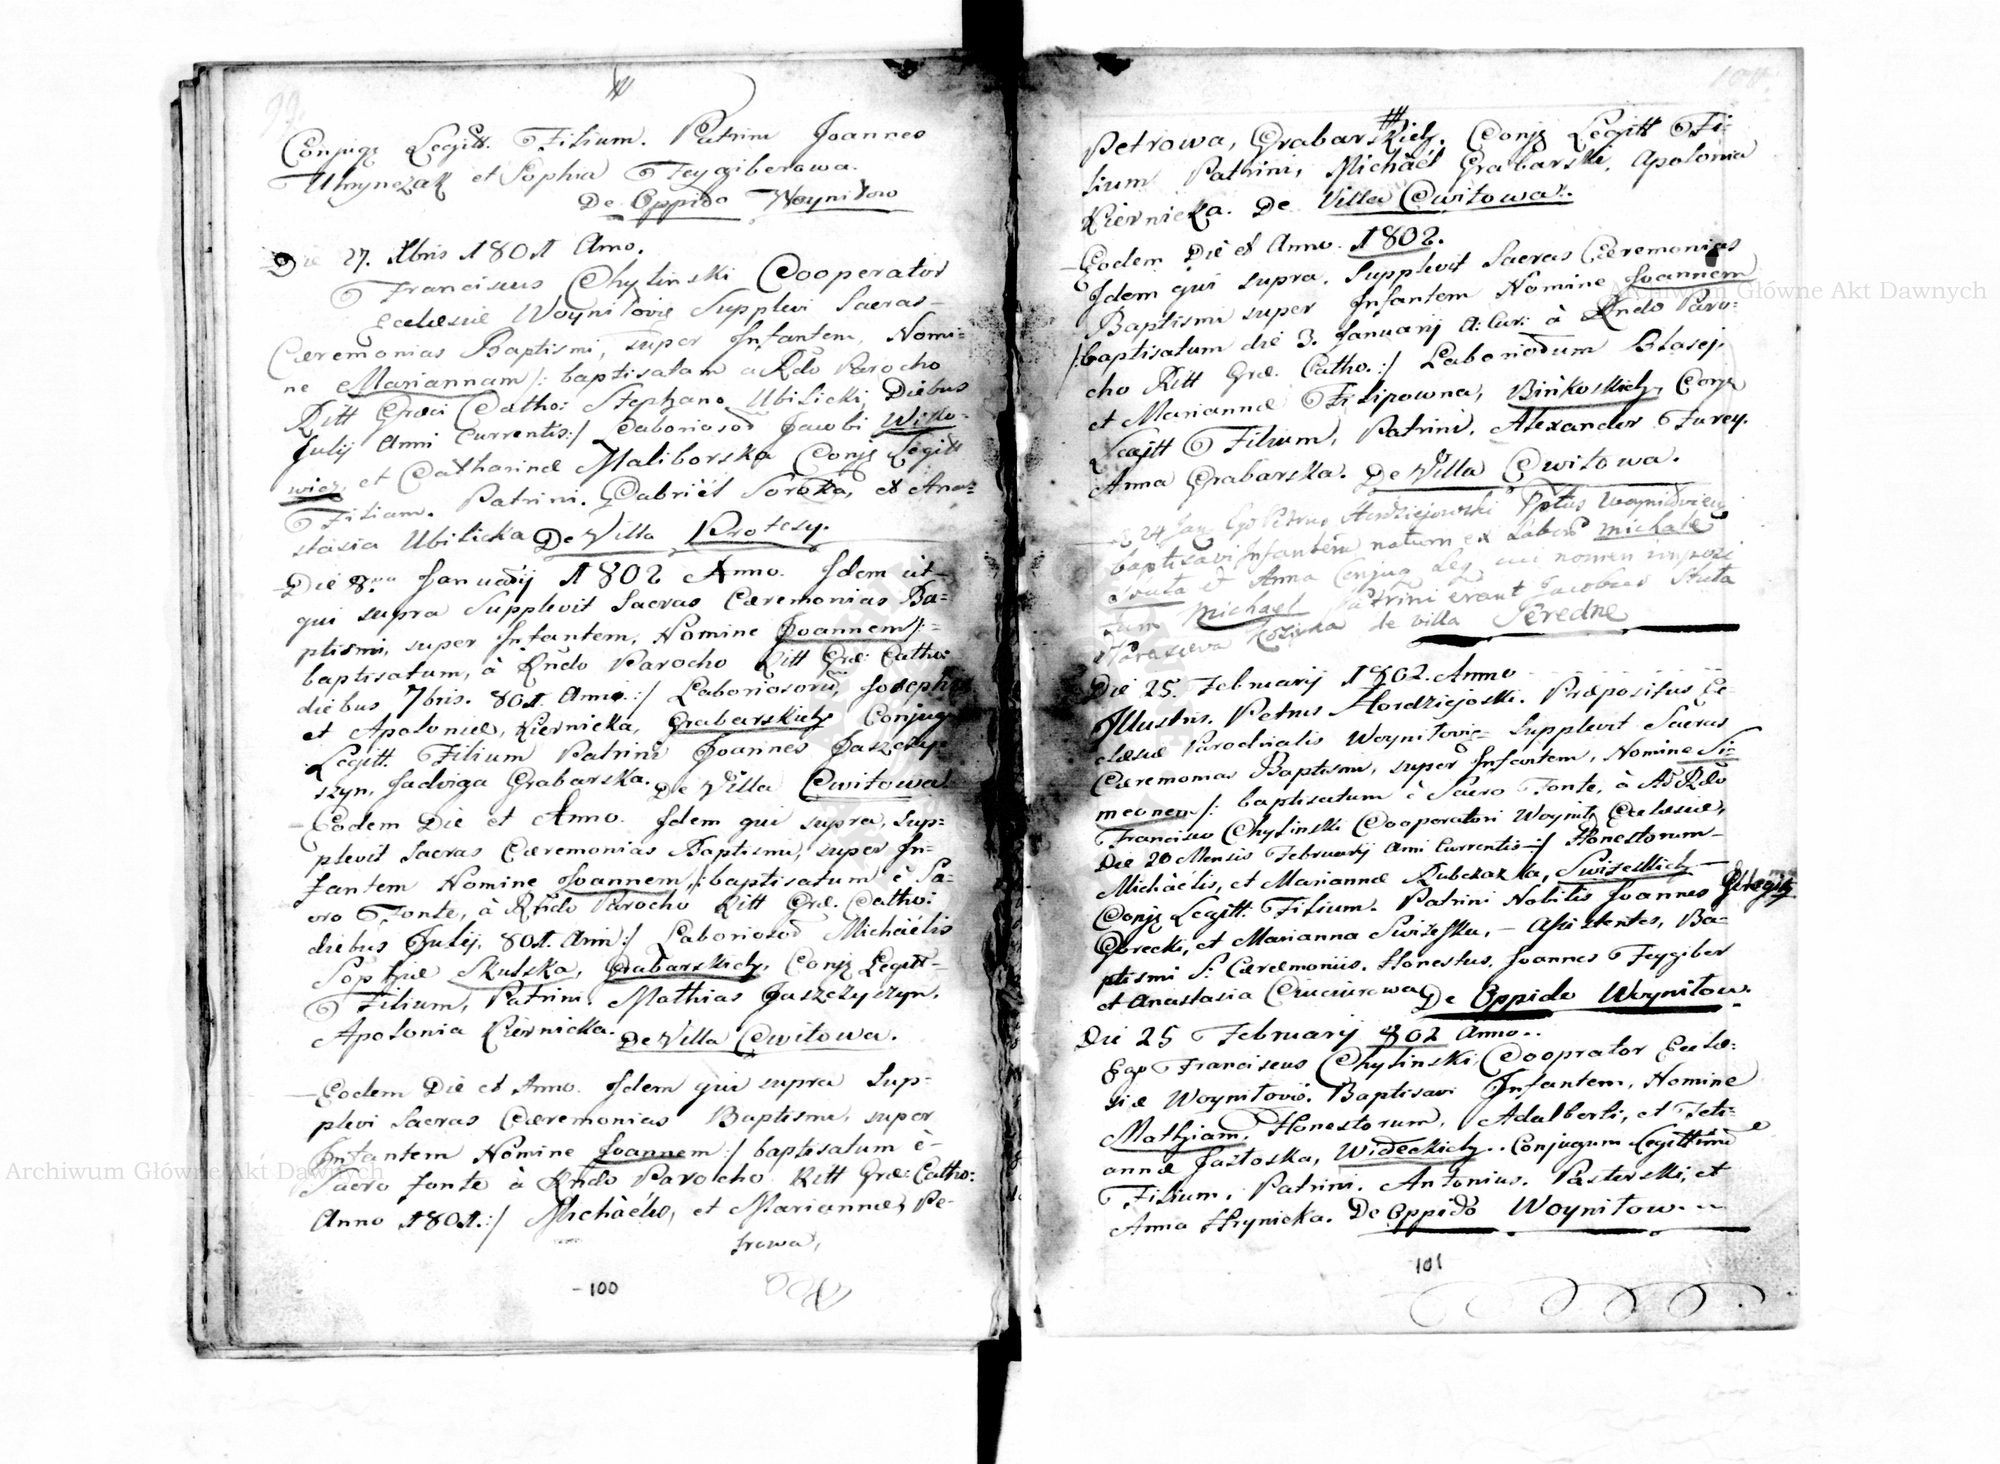 99.
Conjugz Legitt. Filium. Patrini Joannes
Młynczak et Sophia Feygiberowa.
De Oppido Woyniłow
Die 27. Xbris 1801 Anno.
Franciscus Chylinski Cooperator
Ecclesiæ Woyniłoviæ Supplevi Sacras
Cæremonias Baptismi, super Infantem, Nomi=
ne Mariannam /: baptisatam a Rdo Parocho
Ritt Græci Catho: Stephano Ubilicki, Diebus
Julij Anni Currentis :/ Laboriosoð Jacobi Wiśko=
wicz, et Catharinæ Maliborska Conjz Legitt
Filiam. Patrini. Gabriël Soroka, et Ana=
stasia Ubilicka De Villa Protesy.
Die 8va Januarij 1802 Anno. Idem ut
qui supra Supplevit Sacras Cæremonias Ba=
ptismi, super Infantem, Nomine Joannem /:
baptisatum, à Rndo Parocho Ritt Græ: Catho:
diebus 7bris. 801. Anni :/ Laboriosorũ, Josephi
et Apoloniæ, Kiernicka, Grabarskich Conjug
Legitt. Filium Patrini Joannes Jaszczy=
szyn, Jadviga Grabarska. De Villa Cwitowa.
Eodem Die et Anno. Idem qui supra, Sup=
plevit Sacras Cæremonias Baptismi, super In=
fantem Nomine Joannem, /: baptisatum è Sa=
cro Fonte, à Rndo Parocho Ritt Græ. Catho:
diebus Julij. 801. Ann :/ Laboriosoð Michaëlis
Sophiæ Skulska, Grabarskich, Conjz Legitt
Filium, Patrini. Mathias Jaszczyszyn.
Apolonia Kiernicka. De Villa Cwitowa.
Eodem Die et Anno. Idem qui supra Sup=
plevi Sacras Cæremonias Baptismi, super
Infantem Nomine Joannem :/ baptisatum è
Sacro fonte à Rndo Parocho Ritt Græ: Catho:
Anno 1801. :/ Michaëlis, et Mariannæ, Pe=
trowa,
- 100
Petrowa, Grabarskich. Conjz Legitt Fi=
lium Patrini, Michaël Grabarski, Apolonia
Kiernicka. De Villa Cwitowa.
Eodem Die et Anno. 1802.
Idem qui supra. Supplevit Sacras Cæremonias
Baptismi super Infantem Nomine Joannem
/: baptisatum die 3. Januarij A: Cur: à Rndo Paro:
cho Ritt Græ. Catho. :/ Laboriosoðum Blasej,
et Mariannæ Filipowna, Bińkoskich, Conjz
Legitt Filium, Patrini, Alexander Furey.
Anna Grabarska. De Villa Cwitowa.
24 Jan Ego Petrus Hordziejowski Pptus Woyniłovien
baptisavi Infantem natum ex Labor Michaële
Szuta et Anna Conjug Leg cui nomen imposi
tum Michael Patrini erant Jacobus Szuta
Parascewa de villa Seredne
Die 25. Februarij 1802. Anno
Illustris. Petrus Hordziejoski. Præpositus Ec=
clesiæ Parochialis Woyniłoviæ Supplevit Sacras
Cæremonias Baptismi, super Infantem, Nomine Si=
meonem /: baptisatum è Sacro Fonte, à Ad Rdo
Francisco Chylinski Cooperatori Woynił Ecclesiæ,
Die 20 Mensis Februarij Anni Currentis :/ Honestorum
Michaëlis, et Mariannæ Rubczakka, Swiżeskich
Conjz Legitt. Filium. Patrini Nobilis Joannes
Gorecki, et Marianna Swiżeska, – Assistentes, Ba=
ptismi S: Cæræmoniis. Honestus. Joannes Feygiber
et Anastasia Ciuciurowa De Oppido Woyniłow.
Die 25 Februarij 802 Anno..
Ego Franciscus Chylinski Cooprator Eccle:
siæ Woyniłovis. Baptisavi Infantem, Nomine
Mathiam, Honestorum, Adalberti, et Teti=
annæ Jaztoska, Wideckich.. Conjugum Legittimo
Filium, Patrini. Antonius. Pasterski, et
Anna Hrynicka. De Oppido Woyniłow.
101
Archiwum Główne Akt Dawnych
Archiwum Główne Akt Dawnych